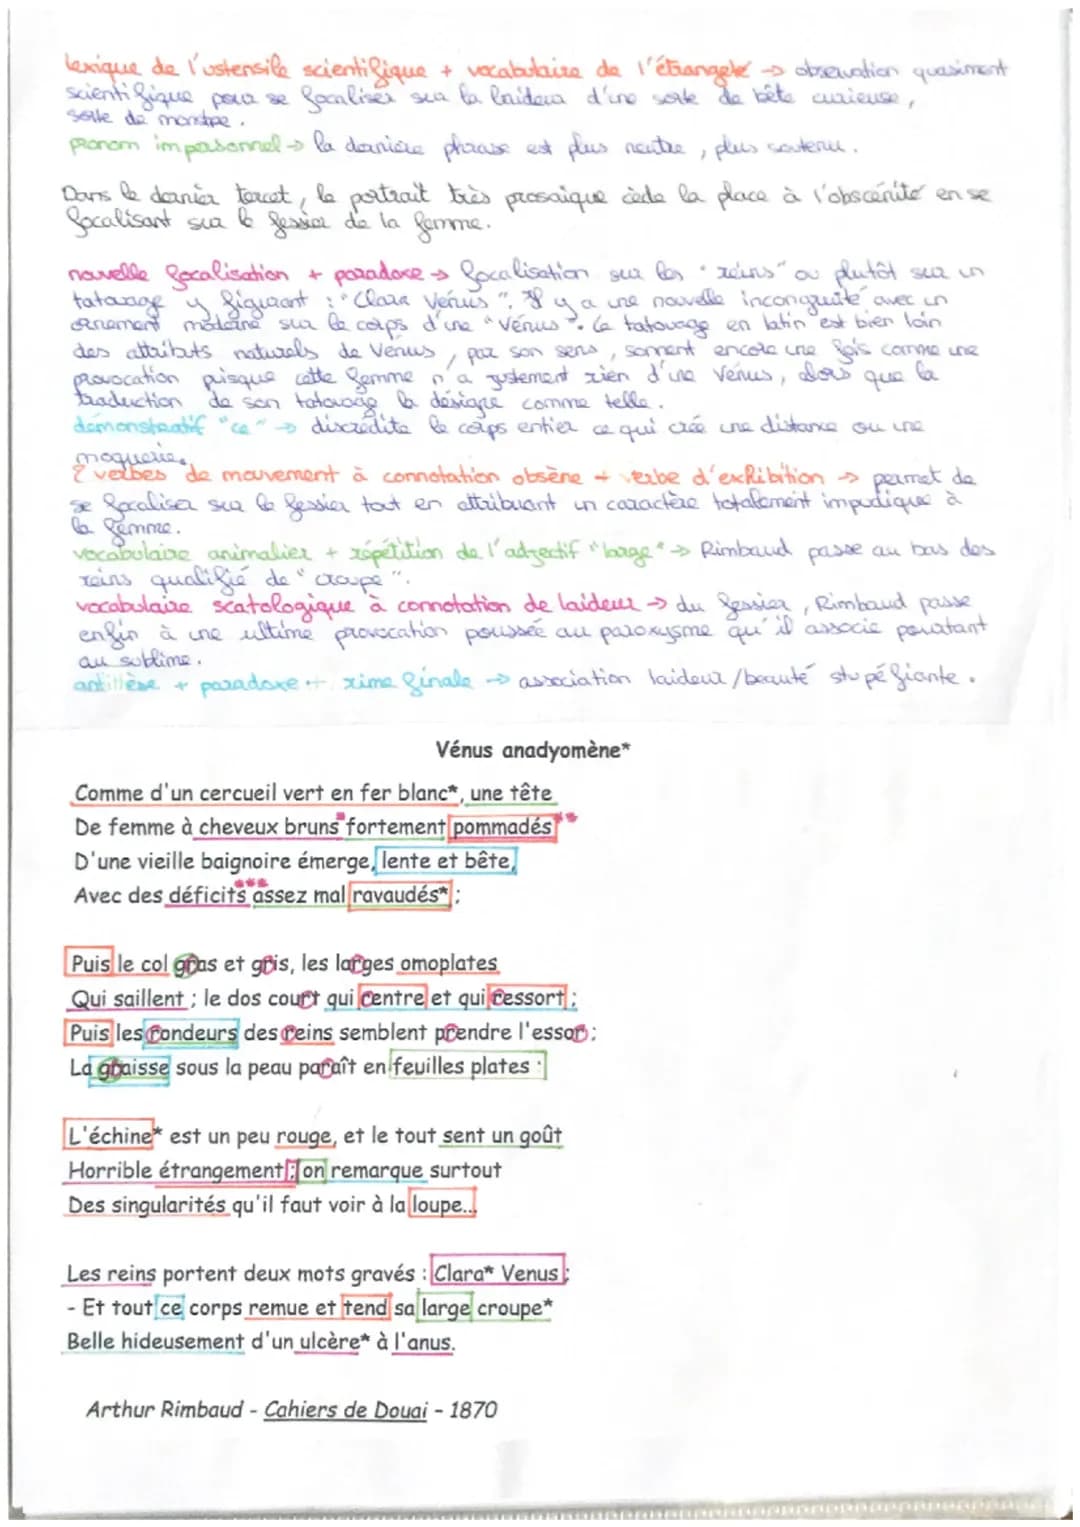 lexique de l'ustensile scientifique + vocabulaire de l'étrangeté → observation quasiment
scientifique pour se focaliser sur la laideur d'une sorte de bête curieuse,
sorte de monstre.
pronom impersonnel → la dernière phrase est plus neutre, plus soutenu.
Dans le dernier tercet, le portrait très prosaïque cède la place à l'obscénité en se
focalisant sur le fessier de la femme.
nouvelle focalisation + paradoxe → focalisation sur les "reins" ou plutôt sur un
tatouage y figurant : "Clara Vénus". Il y a une nouvelle incongruité avec un
ornement moderne sur le corps d'une "Vénus". Ce tatouage en latin est bien loin
des attributs naturels de Vénus, par son sens, sonnent encore une fois comme une
provocation puisque cette femme n'a justement rien d'une Vénus, alors que la
traduction de son tatouage la désigne comme telle.
démonstratif "ce" → discrédite le corps entier ce qui crée une distance ou une
moquerie.
2 verbes de mouvement à connotation obsène + verbe d'exhibition → permet de
se focaliser sur le fessier tout en attribuant un caractère totalement impudique à
la femme.
vocabulaire animalier + répétition de l'adjectif "large" → Rimbaud passe au bas des
reins qualifié de "croupe".
vocabulaire scatologique à connotation de laideur → du fessier, Rimbaud passe
enfin à une ultime provocation poussée au paroxysme qu'il associe pourtant
au sublime.
antithèse + paradoxe + rime finale → association laideur/beauté stupéfiante.
Vénus anadyomène*
Comme d'un cercueil vert en fer blanc*, une tête
De femme à cheveux bruns* fortement pommadés**
D'une vieille baignoire émerge, lente et bête,
Avec des déficits*** assez mal ravaudés* ;
Puis le col gras et gris, les larges omoplates
Qui saillent ; le dos court qui rentre et qui ressort ;
Puis les rondeurs des reins semblent prendre l'essor ;
La graisse sous la peau paraît en feuilles plates :
L'échine* est un peu rouge, et le tout sent un goût
Horrible étrangement ; on remarque surtout
Des singularités qu'il faut voir à la loupe...
Les reins portent deux mots gravés : Clara* Venus ;
- Et tout ce corps remue et tend sa large croupe*
Belle hideusement d'un ulcère* à l'anus.
Arthur Rimbaud - Cahiers de Douai - 1870